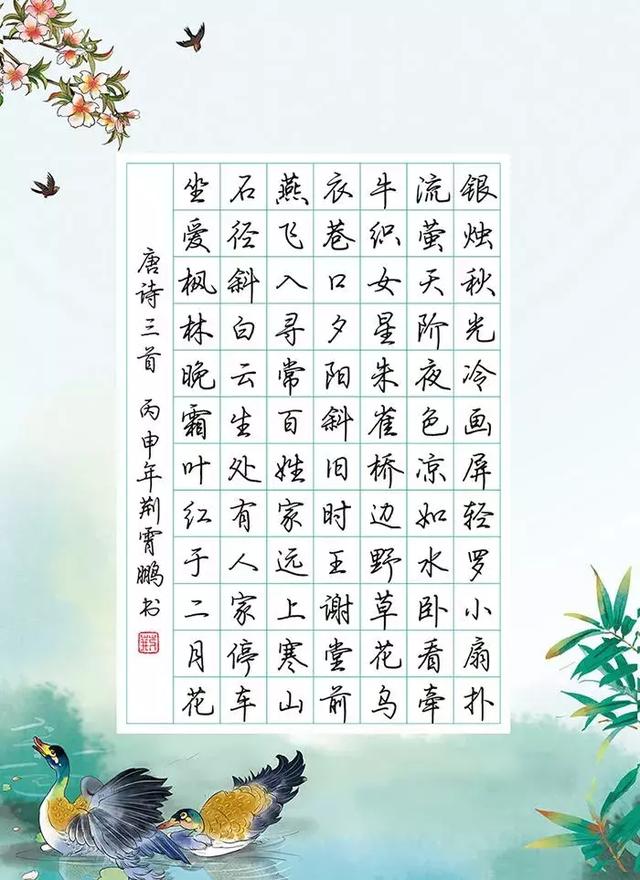 银烛秋光冷画屏轻罗小扇扑
流萤天阶夜色凉如水卧看牵
牛织女星朱雀桥边野草花乌
衣巷口夕阳斜旧时王谢堂前
燕飞入寻常百姓家远上寒山
石径斜白云生处有人家停车
坐爱枫林晚霜叶红于二月花
唐诗三首 丙申年荆霄鹏书